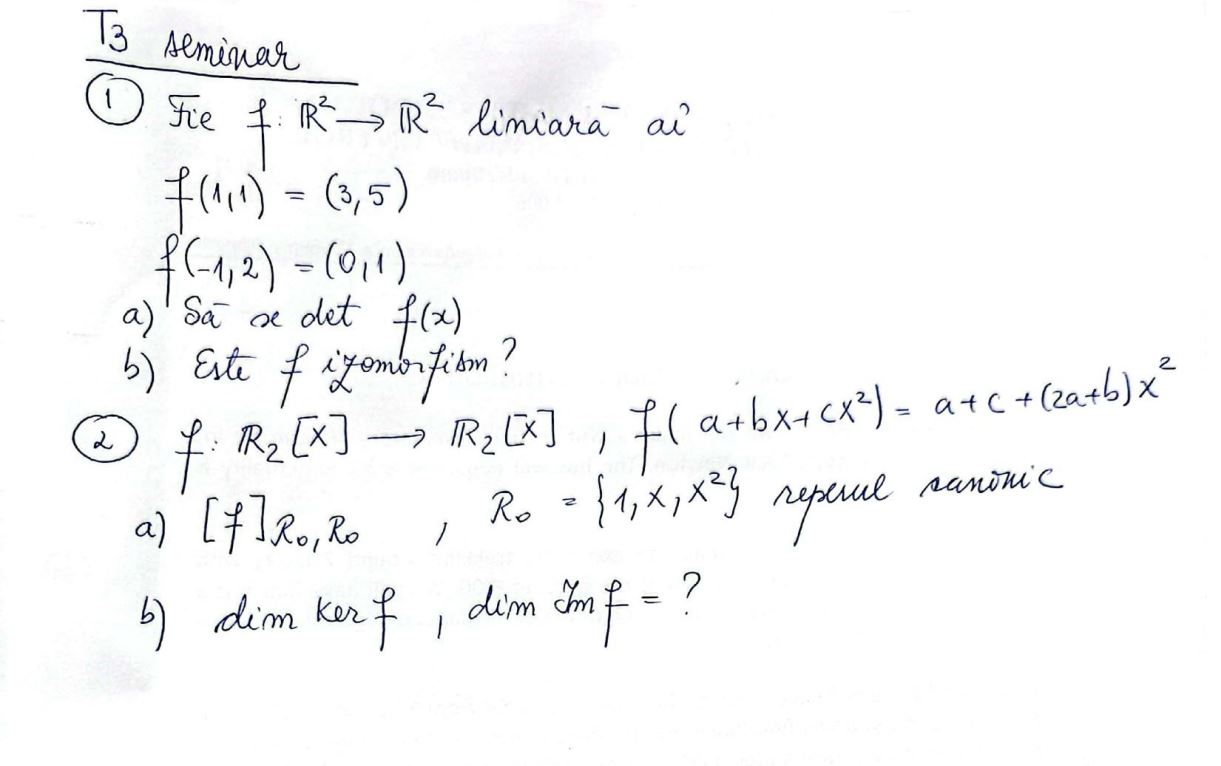 T3 seminar
① Fie f: ℝ² → ℝ² liniară aî
f(1,1) = (3,5)
f(-1,2) = (0,1)
a) Să se det f(x)
b) Este f izomorfism?
② f: ℝ₂[X] → ℝ₂[X], f(a+bX+cX²) = a+c+(2a+b)X²
a) [f]R₀,R₀ , R₀ = {1,X,X²} reperul canonic
b) dim Ker f, dim Im f = ?